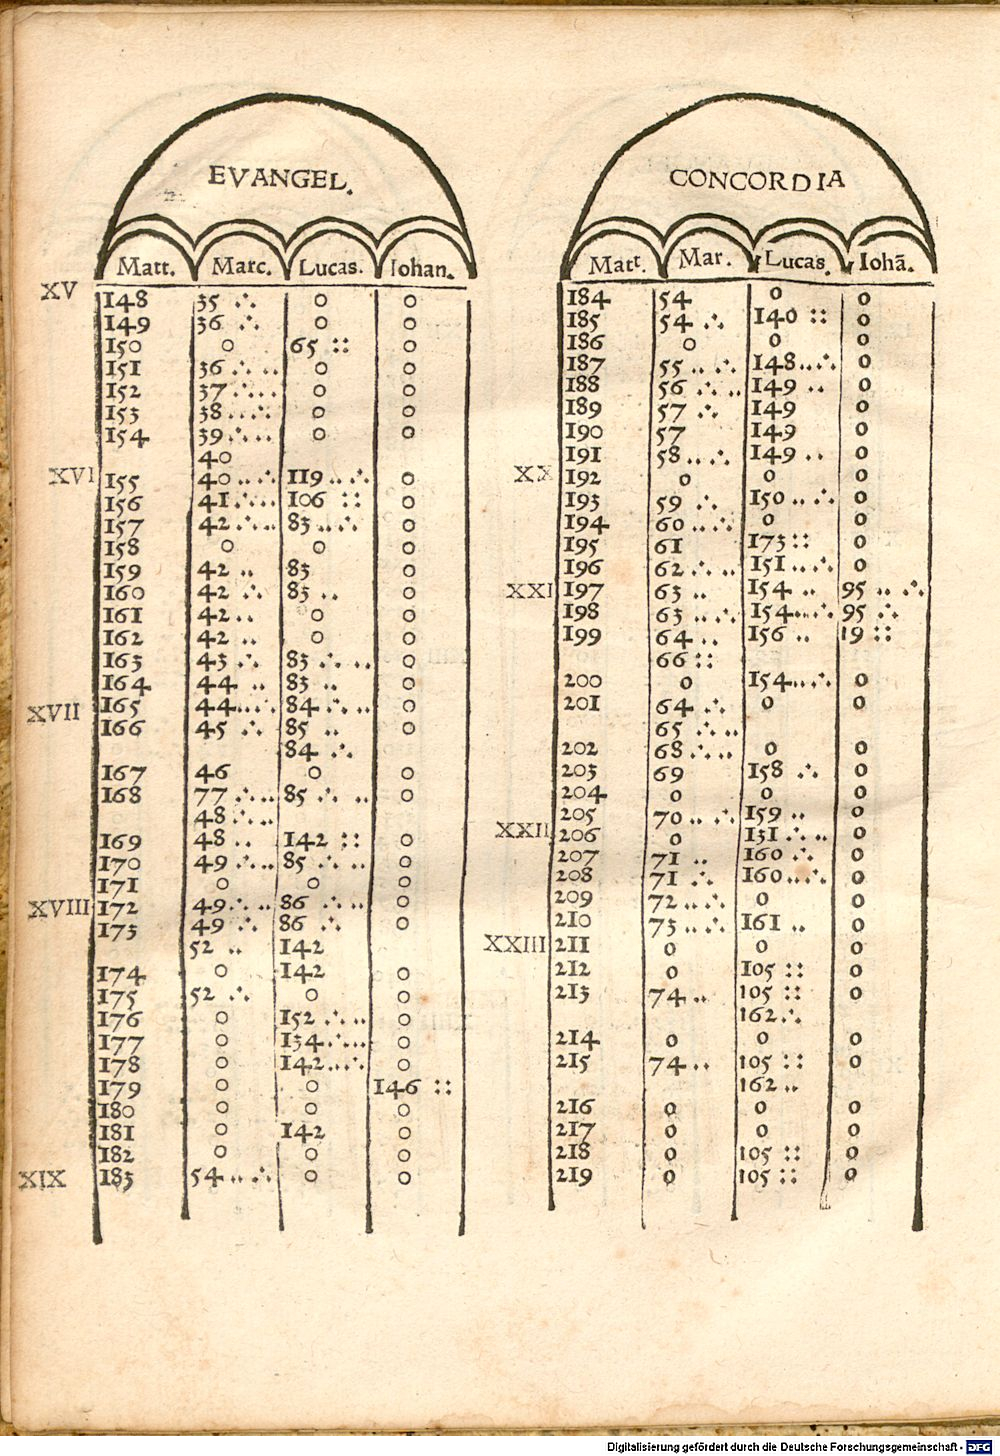 EVANGEL.
Matt. Marc. Lucas. Iohan.
XV 148 35 ∴ 0 0
149 36 ∴ 0 0
150 0 65 :: 0
151 36 ∴ .. 0 0
152 37 ∴ .. 0 0
153 38 .. ∴ 0 0
154 39 ∴ .. 0 0
40
XVI 155 40 .. ∴ 119 .. ∴ 0
156 41 ∴ .. 106 :: 0
157 42 ∴ .. 83 .. ∴ 0
158 0 0 0
159 42 .. 83 0
160 42 ∴ 83 .. 0
161 42 .. 0 0
162 42 .. 0 0
163 43 ∴ 83 ∴ .. 0
164 44 .. 83 .. 0
XVII 165 44 .. ∴ 84 ∴ .. 0
166 45 ∴ 85 .. 0
84 ∴
167 46 0 0
168 77 ∴ .. 85 ∴ .. 0
48 ∴ ..
169 48 .. 142 :: 0
170 49 ∴ .. 85 ∴ .. 0
171 0 0 0
XVIII 172 49 ∴ .. 86 ∴ .. 0
173 49 ∴ 86 ∴ 0
52 .. 142
174 0 142 0
175 52 ∴ 0 0
176 0 152 ∴ .. 0
177 0 134 ∴ .. 0
178 0 142 .. ∴ 0
179 0 0 146 ::
180 0 0 0
181 0 142 0
182 0 0 0
XIX 183 54 .. ∴ 0 0
CONCORDIA
Matt. Mar. Lucas. Iohã.
184 54 0 0
185 54 ∴ 140 :: 0
186 0 0 0
187 55 .. ∴ 148 .. ∴ 0
188 56 ∴ .. 149 .. 0
189 57 ∴ 149 0
190 57 149 0
191 58 .. ∴ 149 .. 0
XX 192 0 0 0
193 59 ∴ 150 .. ∴ 0
194 60 .. ∴ 0 0
195 61 173 :: 0
196 62 ∴ .. 151 .. ∴ 0
XXI 197 63 .. 154 .. 95 .. ∴
198 63 .. ∴ 154 .. ∴ 95 ∴
199 64 .. 156 .. 19 ::
66 ::
200 0 154 .. ∴ 0
201 64 ∴ 0 0
65 ∴ ..
202 68 ∴ .. 0 0
203 69 158 ∴ 0
204 0 0 0
205 70 .. ∴ 159 .. 0
XXII 206 0 131 ∴ .. 0
207 71 .. 160 ∴ 0
208 71 ∴ 160 .. ∴ 0
209 72 .. ∴ 0 0
210 73 .. ∴ 161 .. 0
XXIII 211 0 0 0
212 0 105 :: 0
213 74 .. 105 :: 0
162 ∴
214 0 0 0
215 74 .. 105 :: 0
162 ..
216 0 0 0
217 0 0 0
218 0 105 :: 0
219 0 105 :: 0
Digitalisierung gefördert durch die Deutsche Forschungsgemeinschaft - DFG